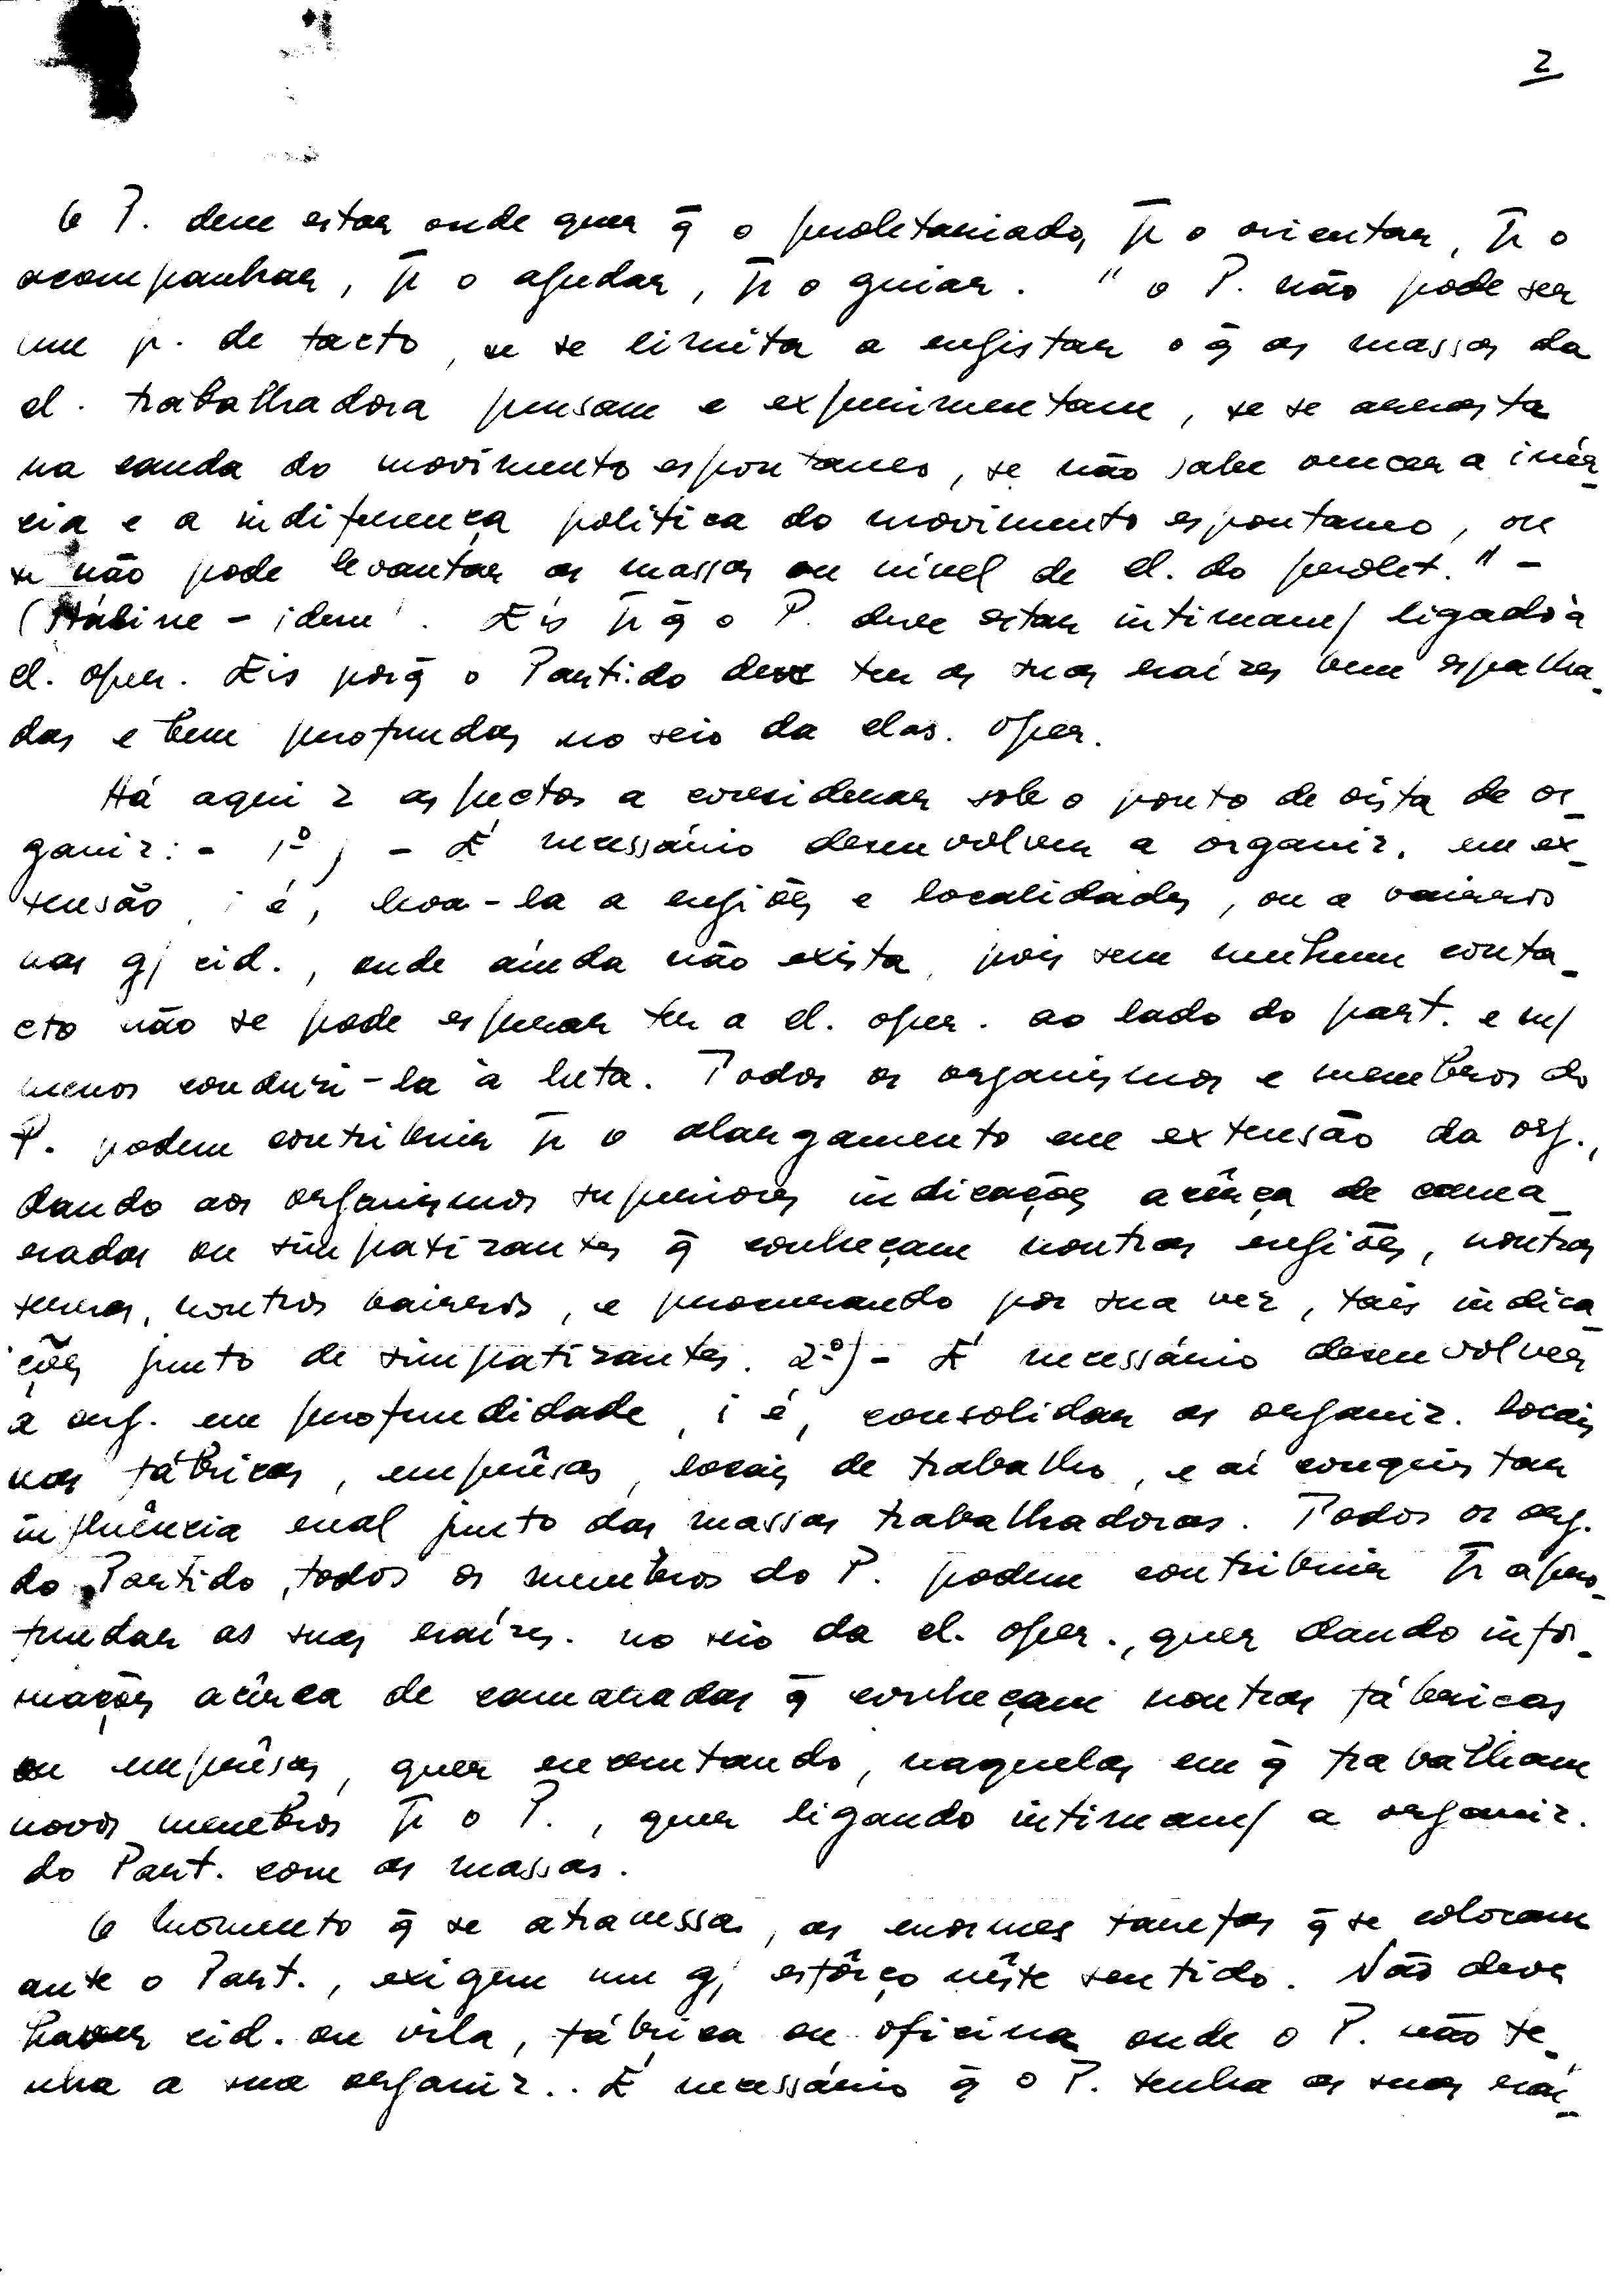 2
O P. deve estar onde quer q̄ o proletariado, p̄ o orientar, p̄ o
acompanhar, p̄ o ajudar, p̄ o guiar. " o P. não pode ser
um p. de facto, se se limita a registar o q̄ as massas da
cl. trabalhadora pensam e experimentam, se se arrasta
na cauda do movimento espontaneo, se não sabe vencer a inér_
cia e a indiferença politica do movimento espontaneo, ou
se não pode levantar as massas ao nivel de cl. do prolet." -
(Stáline - idem). Eis p̄ q̄ o P. deve estar intimam/ ligado à
cl. oper. Eis porq̄ o Partido deve ter as suas raízes bem espalha_
das e bem profundas no seio da clas. oper.
Há aqui 2 aspectos a considerar sob o ponto de vista de or_
ganiz: - 1º) - É necessário desenvolver a organiz. em ex_
tensão, i é, leva-la a regiões e localidades, ou a bairros
nas g/ cid., onde ainda não exista, pois sem nenhum conta_
cto não se pode esperar ter a cl. oper. ao lado do part. e m/
menos conduzi-la à luta. Todos os organismos e membros do
P. podem contribuir p̄ o alargamento em extensão da org.,
dando aos organismos superiores indicações acêrca de cama_
radas ou simpatizantes q̄ conheçam noutras regiões, noutras
terras, noutros bairros, e procurando por sua vez, tais indica_
ções junto de simpatizantes. 2º) - É necessário desenvolver
a org. em profundidade, i é, consolidar as organiz. locais
nas fábricas, emprêsas, locais de trabalho, e aí conquistar
influência real junto das massas trabalhadoras. Todos os org.
do Partido, todos os membros do P. podem contribuir p̄ apro_
fundar as suas raízes. no seio da cl. oper., quer dando infor_
mações acêrca de camaradas q̄ conheçam noutras fábricas
ou emprêsas, quer recrutando, naquelas em q̄ trabalham
novos membros p̄ o P., quer ligando intimam/ a organiz.
do Part. com as massas.
O momento q̄ se atravessa, as enormes tarefas q̄ se colocam
ante o Part., exigem um g/ esfôrço nêste sentido. Não deve
haver cid. ou vila, fábrica ou oficina onde o P. não te_
nha a sua organiz.. É necessário q̄ o P. tenha as suas raí_